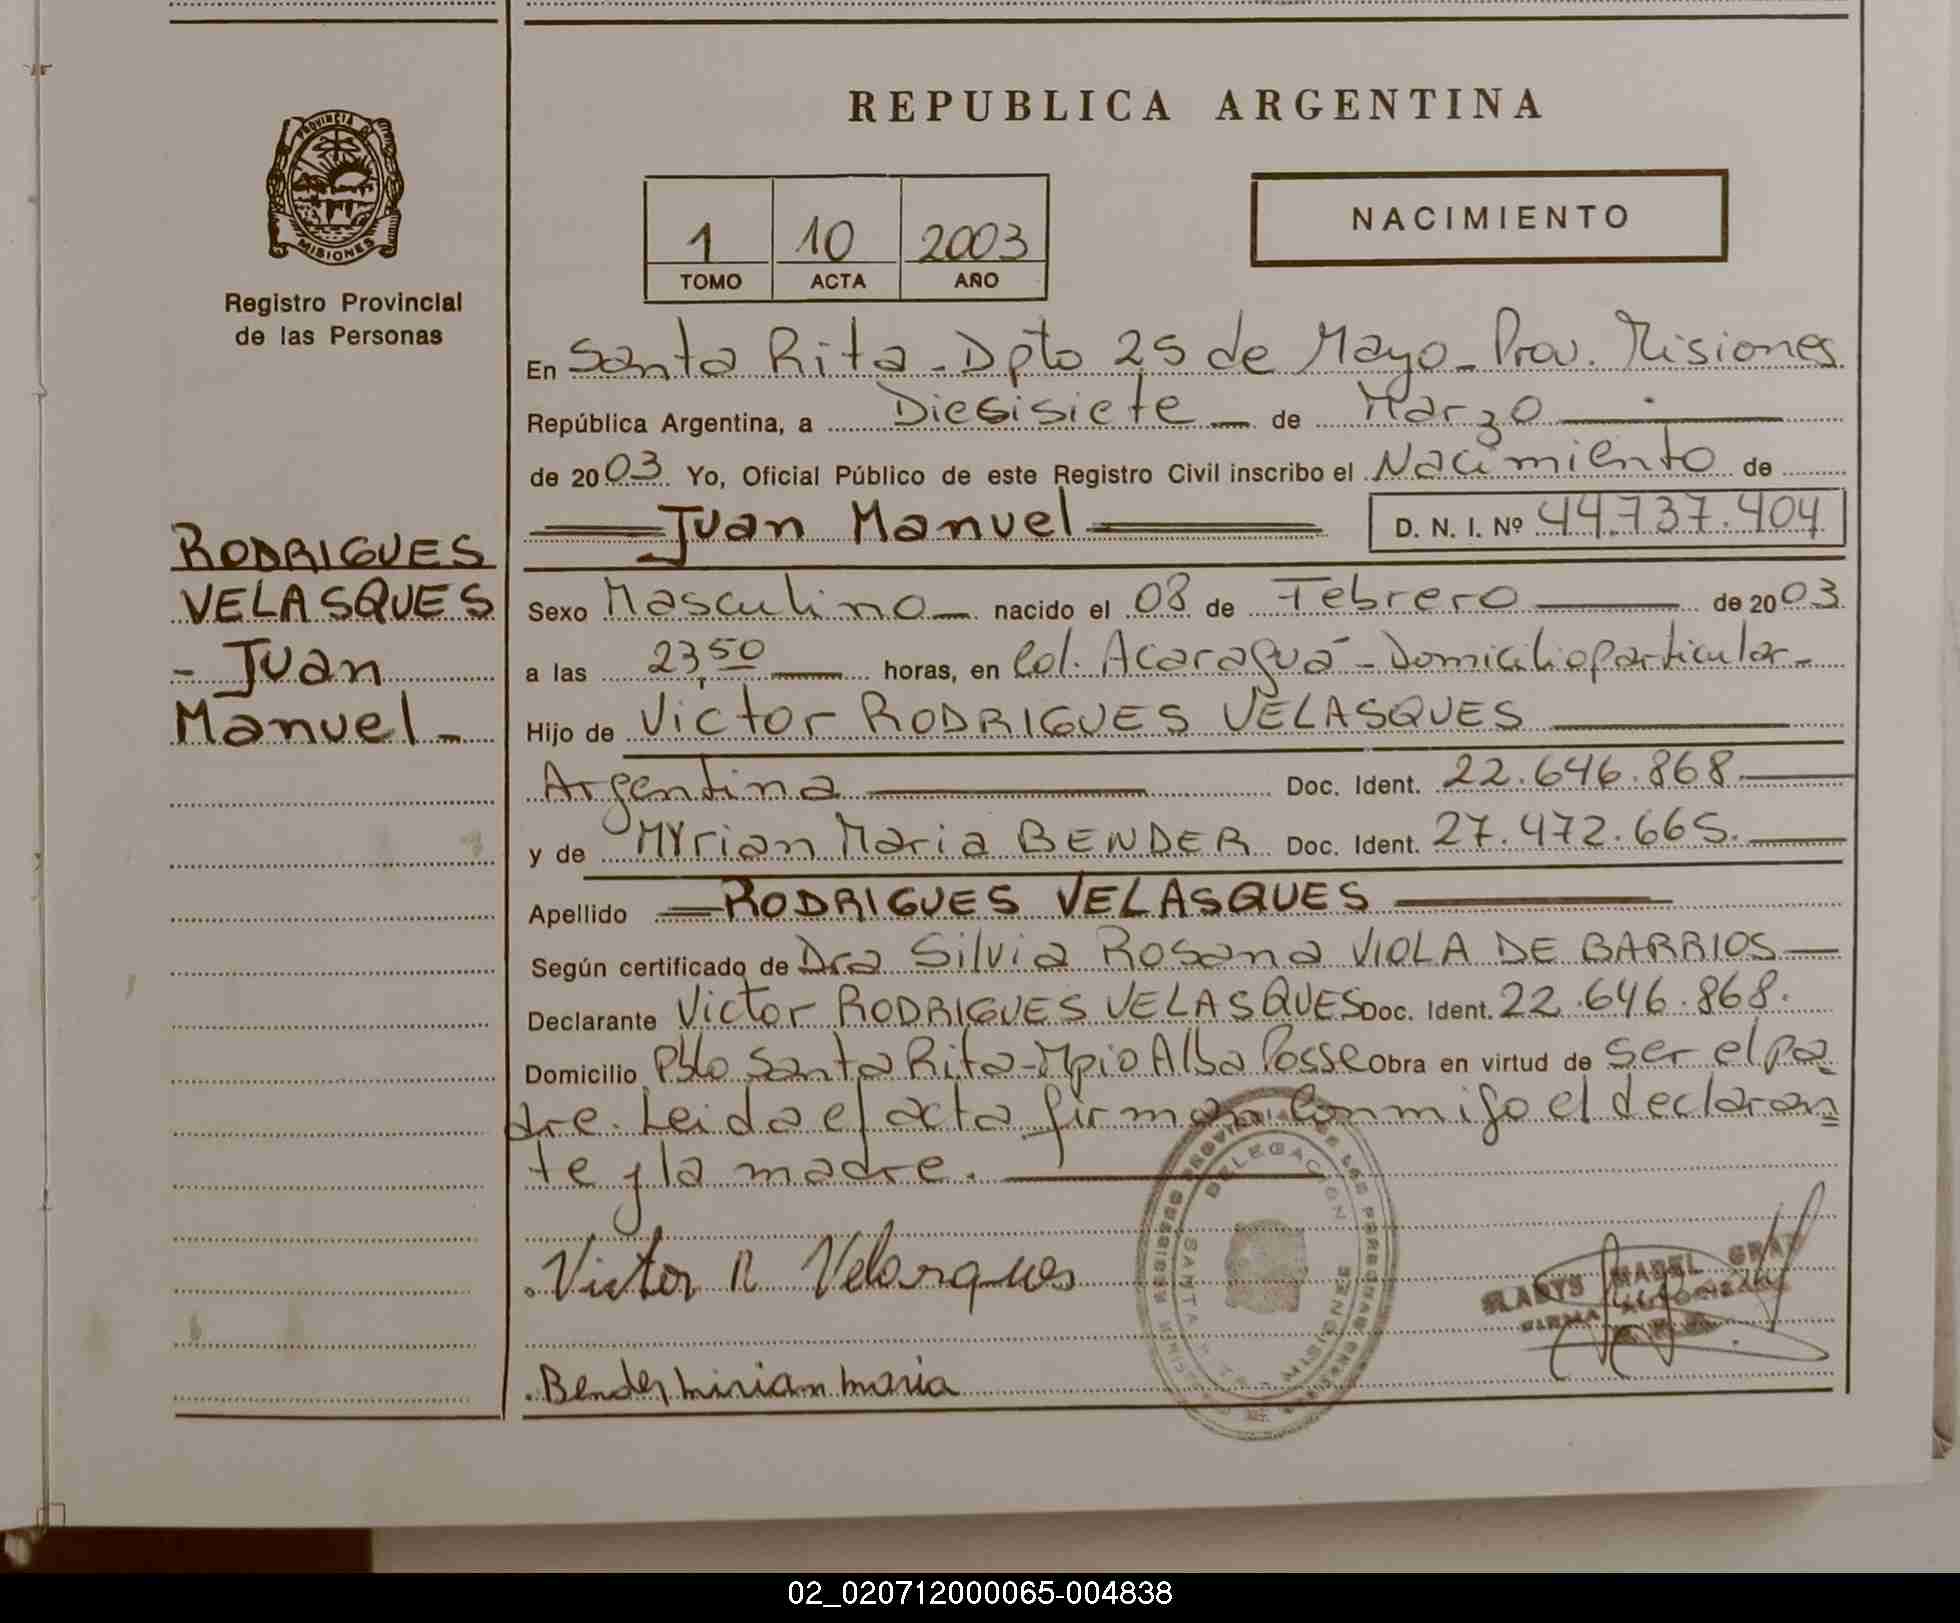 REPUBLICA ARGENTINA
PROVINCIA DE
MISIONES
Registro Provincial
de las Personas
1 10 2003
TOMO ACTA AÑO
NACIMIENTO
En Santa Rita - Dpto 25 de Mayo - Prov. Misiones
República Argentina, a Diesisiete — de Marzo —
de 2003 Yo, Oficial Público de este Registro Civil inscribo el Nacimiento de
Juan Manuel D. N. I. Nº 44.737.404
RODRIGUES
VELASQUES
- Juan
Manuel -
Sexo Masculino — nacido el 08 de Febrero — de 2003
a las 23,50 — horas, en Col. Acaraguá - Domicilio particular -
Hijo de Victor RODRIGUES VELASQUES —
Argentina — Doc. Ident. 22.646.868 —
y de MYrian Maria BENDER Doc. Ident. 27.472.665. —
Apellido — RODRIGUES VELASQUES —
Según certificado de Dra Silvia Rosana VIOLA DE BARRIOS —
Declarante Victor RODRIGUES VELASQUES Doc. Ident. 22.646.868.
Domicilio Pblo Santa Rita - Mpio Alba Posse Obra en virtud de ser el pa
dre. Leida el acta firman conmigo el declaran
te y la madre. —
Victor R Velasques
Bender mirian maria
DELEGACION SANTA RITA
MISIONES
GLADYS MABEL GRAF
FIRMA AUTORIZADA
02_020712000065-004838